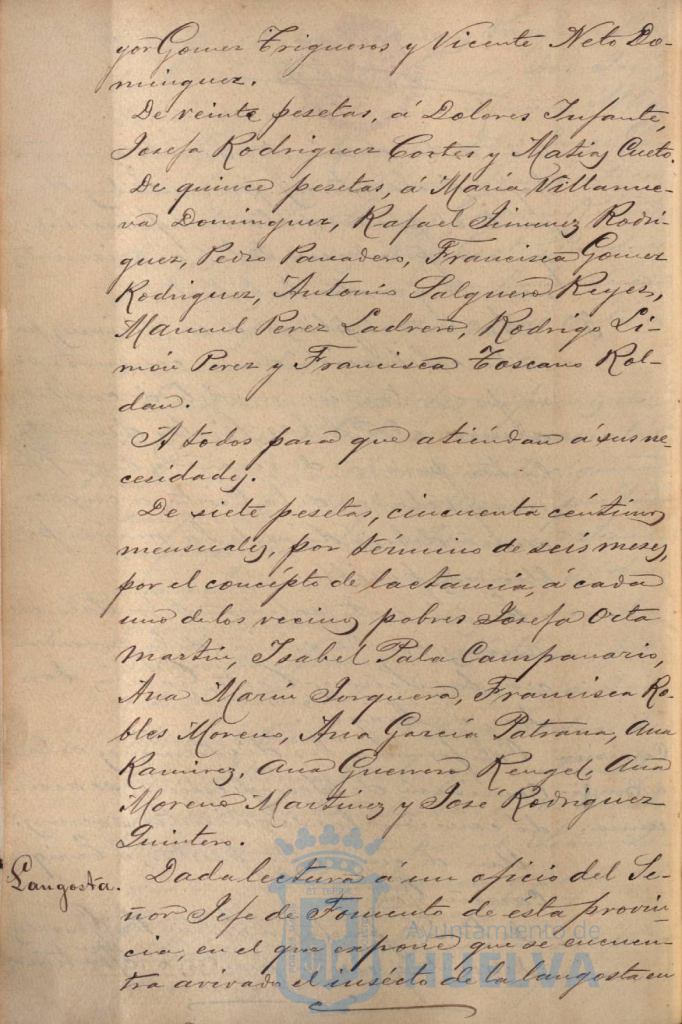 yor Gomez Trigueros y Vicente Neto Do-
minguez.
De veinte pesetas, á Dolores Infante,
Josefa Rodriguez Cortes y Matias Cueto.
De quince pesetas, á Maria Villanue-
va Dominguez, Rafael Jimenez Rodri-
guez, Pedro Panadero, Francisca Gomez
Rodriguez, Antonio Salguero Reyes,
Manuel Perez Ladrero, Rodrigo Li-
món Perez y Francisca Toscano Rol-
dan.
A todos para que atiendan á sus ne-
cesidades.
De siete pesetas, cincuenta céntimos
mensuales, por término de seis meses,
por el concépto de lactancia, á cada
uno de los vecinos pobres Josefa Orta
Martin, Isabel Pala Campanario,
Ana Marin Jorquera, Francisca Ro-
bles Moreno, Ana Garcia Patrana, Ana
Ramirez, Ana Guerrero Rengel, Ana
Moreno Martinez y José Rodriguez
Quintero.
Langosta.
Dada lectura á un oficio del Se-
ñor Jefe de Fomento de ésta provin-
cia, en el que expone que se encuen-
tra avivado el insécto de la langosta en
Ayuntamiento de
HUELVA